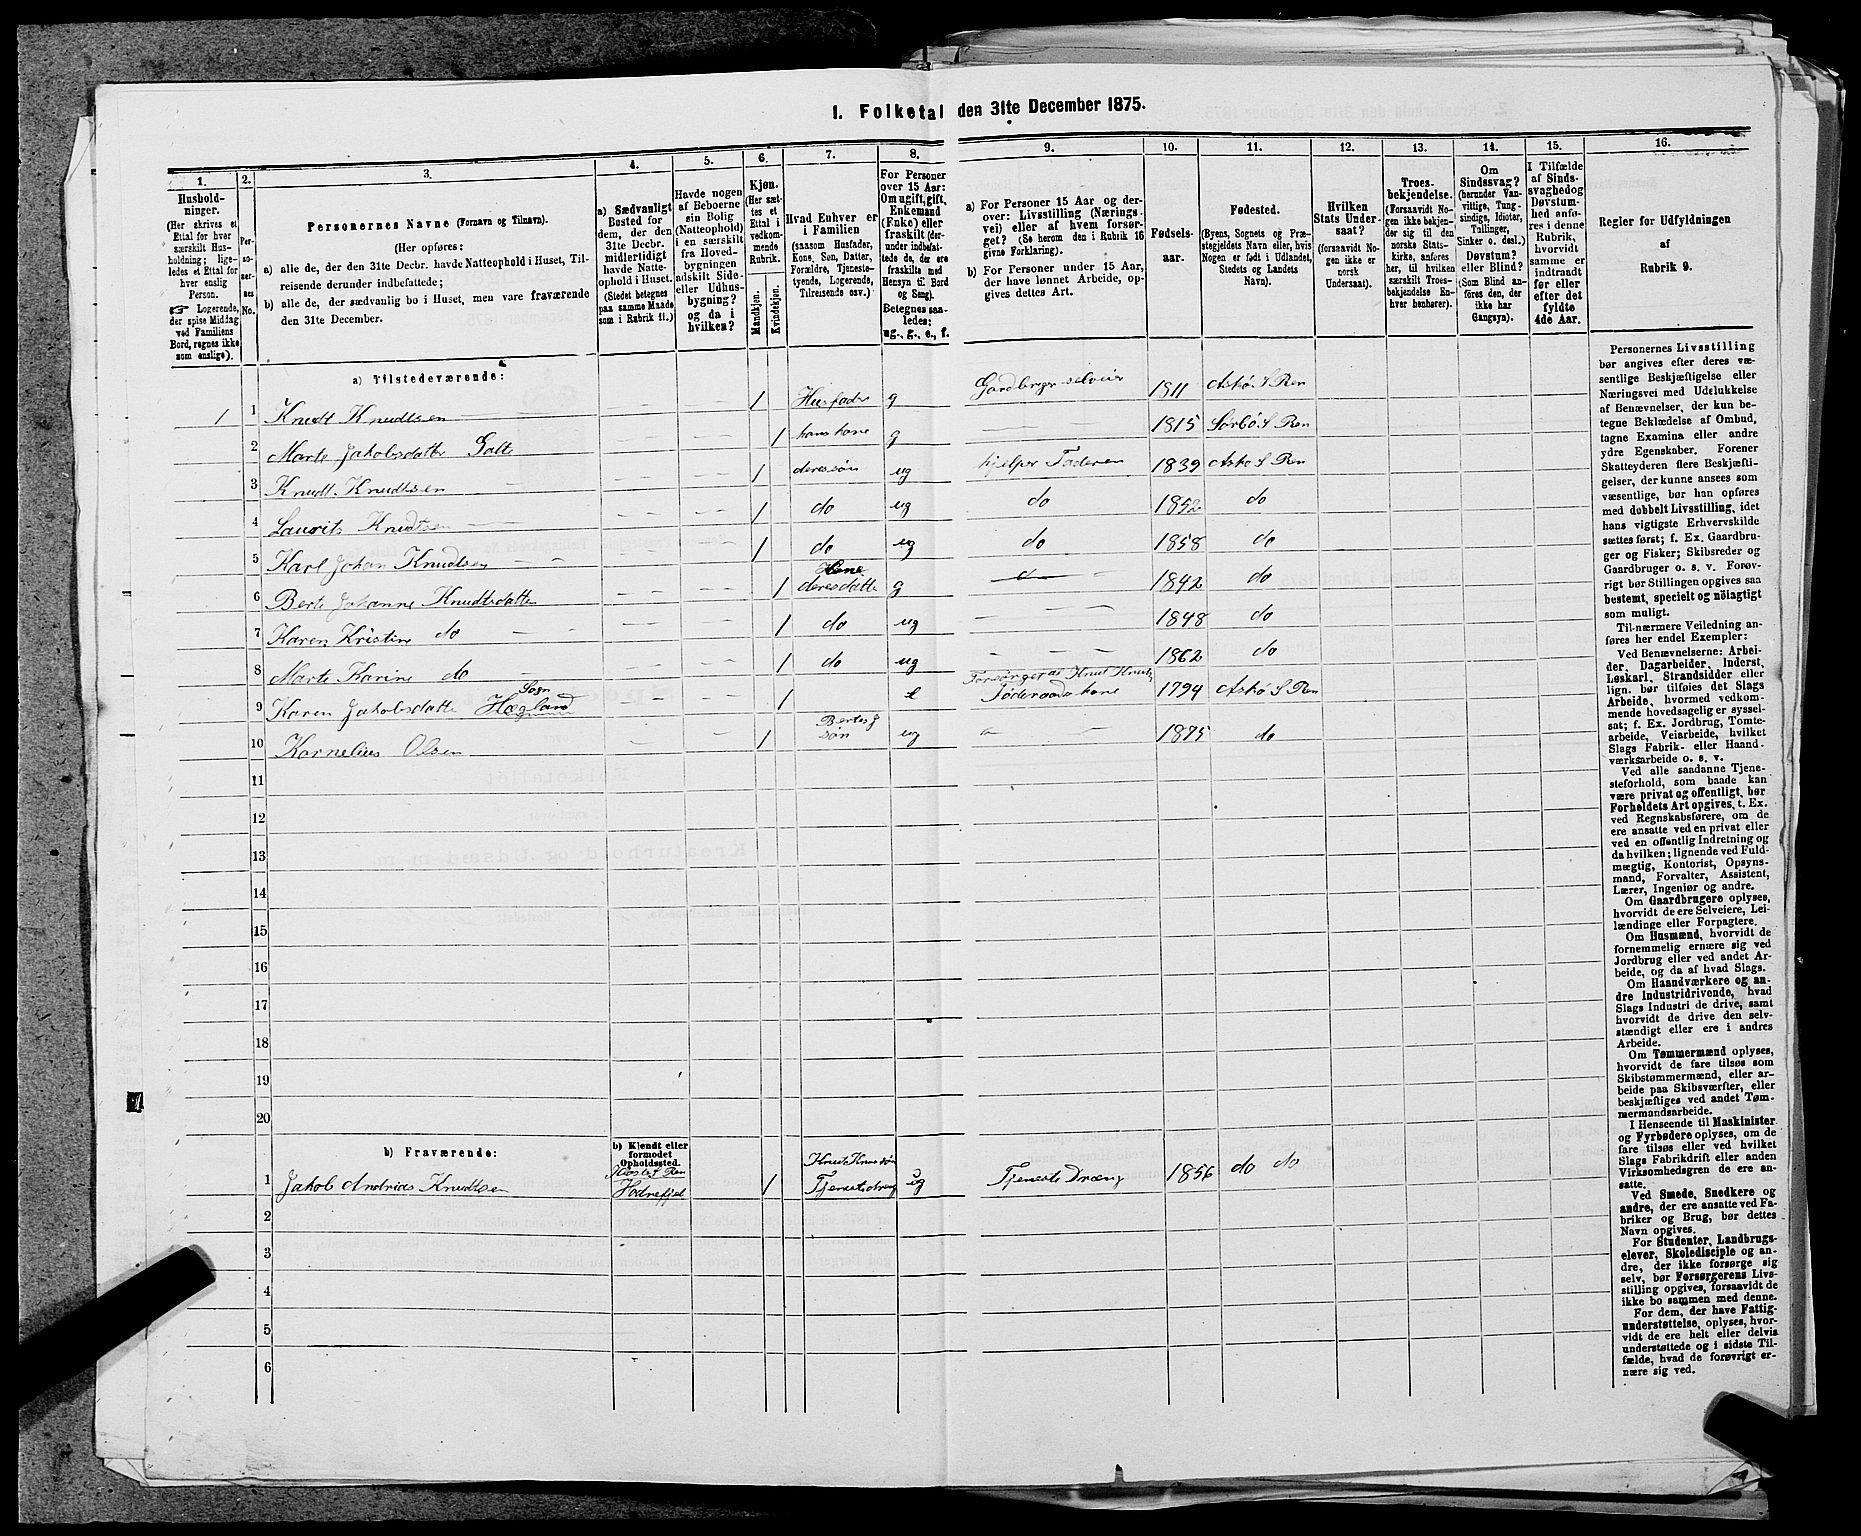 1. Folketal den 31te December 1875.
1.
2.
3.
4.
5.
6.
7.
8.
9.
10.
11.
12.
13.
14.
15.
16.
Hushold-
ninger.
(Her skrives et
Ettal for hver
særskilt Hus-
holdning; lige-
ledes et Ettal for
hver enslig
Person.
☞ Logerende,
der spise Middag
ved Familiens
Bord, regnes ikke
som enslige).
Per-
so-
ner-
nes
No.
Personernes Navne (Fornavn og Tilnavn).
(Her opføres:
a) alle de, der den 31te Decbr. havde Natteophold i Huset, Til-
reisende derunder indbefattede;
b) alle de, der sædvanlig bo i Huset, men vare fraværende
den 31te December.
a) Sædvanligt
Bosted for
dem, der den
31te Decbr.
midlertidigt
havde Natte-
ophold i Huset.
(Stedet betegnes
paa samme Maade
som i Rubrik 11.)
Havde nogen
af Beboerne
sin Bolig
(Natteophold)
i en særskilt
fra Hoved-
bygningen
adskilt Side-
eller Udhus-
bygning?
og da i
hvilken?
Kjøn.
(Her sæt-
tes et
Ettal i
vedkom-
mende
Rubrik.
Mandkjøn.
Kvindekjøn.
Hvad Enhver er
i Familien
(saasom Husfader,
Kone, Søn, Datter,
Forældre, Tjeneste-
tyende, Logerende,
Tilreisende osv.)
For Personer
over 15 Aar:
Om ugift, gift,
Enkemand
(Enke) eller
fraskilt (der-
under indbefat-
tede de, der ere
fraskilte med
Hensyn til Bord
og Seng).
Betegnes saa-
ledes:
ug., g., e., f.
a) For Personer 15 Aar og der-
over: Livsstilling (Nærings-
vei) eller af hvem forsør-
get? (Se herom den i Rubrik 16
givne Forklaring).
b) For Personer under 15 Aar,
der have lønnet Arbeide, op-
gives dettes Art.
Fødsels-
aar.
Fødested.
(Byens, Sognets og Præ-
stegjeldets Navn eller, hvis
Nogen er født i Udlandet,
Stedets og Landets
Navn).
Hvilken
Stats Under-
saat?
(forsaavidt No-
gen ikke er
norsk
Undersaat).
Troes-
bekjendelse.
(Forsaavidt No-
gen ikke bekjen-
der sig til den
norske Stats-
kirke, anføres
her, til hvilken
særskilt Troes-
bekjendelse En-
hver henhører).
Om
Sindssvag?
(herunder Van-
vittige, Tung-
sindige, Idioter,
Tullinger,
Sinker o. desl.)
Døvstum?
eller Blind?
(Som Blind an-
føres den, der
ikke har
Gangsyn).
I Tilfælde
af Sinds-
svaghed og
Døvstum-
hed anfø-
res i denne
Rubrik,
hvorvidt
samme er
indtraadt
før eller
efter det
fyldte
4de Aar.
Regler for Udfyldningen
af
Rubrik 9.
a) Tilstedeværende:
1 1 Knudt Knudtsen — — — 1 Husfader g Gardbruger selveier 1811 Askø S Ren
2 Marte Jakobsdatter Galte — — 1 hans kone g — — 1815 Sørbø S Ren
3 Knudt Knudtsen — — 1 deres søn ug hjelper Faderen 1839 Askø S Ren
4 Laurits Knudtsen — — 1 do ug do 1852 do
5 Karl Johan Knudtsen — — 1 do ug do 1858 do
6 Berte Johanne Knudtsdatter — — 1 deres datter g 1842 do
7 Karen Kristine do — — 1 do ug — — 1848 do
8 Marte Karine do — — 1 do ug — — 1862 do
Sogn Forsørget af Knut Knuts
9 Karen Jakobsdatte Hægland 1 e Føderaadskone 1794 Askø S Ren
Bertes
10 Kornelius Olsen — — 1 søn ug — 1875 do
11
12
13
14
15
16
17
18
19
20
b) Fraværende:
b) Kjendt eller
formodet
Opholdssted.
1 Jakob Andreas Knudtsen Hodnefjel 1 Knut Knutsøn Tjenestedreng ug Tjeneste Dræng 1856 do do
2
3
4
5
6
Personernes Livsstilling
bør angives efter deres væ-
sentlige Beskjæftigelse eller
Næringsvei med Udelukkelse
af Benævnelser, der kun be-
tegne Beklædelse af Ombud,
tagne Examina eller andre
ydre Egenskaber. Forener
Skatteyderen flere Beskjæfti-
gelser, der kunne ansees som
væsentlige, bør han opføres
med dobbelt Livsstilling, idet
hans vigtigste Erhvervskilde
sættes først; f. Ex. Gaardbru-
ger og Fisker; Skibsreder og
Gaardbruger o. s. v. Forøv-
rigt bør Stillingen opgives saa
bestemt, specielt og nöiagtigt
som muligt.
Til nærmere Veiledning an-
føres her endel Exempler:
Ved Benævnelserne: Arbei-
der, Dagarbeider, Inderst,
Løskarl, Strandsidder eller
lign. bør tilføies det Slags
Arbeide, hvormed vedkom-
mende hovedsagelig er syssel-
sat; f. Ex. Jordbrug, Tomte-
arbeide, Veiarbeide, hvilket
Slags Fabrik- eller Haand-
værksarbeide o. s. v.
Ved alle saadanne Tjene-
steforhold, som baade kan
være privat og offentligt, bør
Forholdets Art opgives, t. Ex.
ved Regnskabsførere, om de
ere ansatte ved en privat eller
ved en offentlig Indretning og
da hvilken; lignende ved Fuld-
mægtig, Kontorist, Opsyns-
mand, Forvalter, Assistent,
Lærer, Ingeniør og andre.
Om Gaardbrugere oplyses,
hvorvidt de ere Selveiere, Lei-
lændinge eller Forpagtere.
Om Husmænd, hvorvidt de
fornemmelig ernære sig ved
Jordbrug eller ved andet Ar-
beide, og da af hvad Slags.
Om Haandværkere og an-
dre Industridrivende, hvad
Slags Industri de drive, samt
hvorvidt de drive den selv-
stændigt eller ere i andres
Arbeide.
Om Tømmermænd oplyses,
hvorvidt de fare tilsøs som
Skibstømmermænd, eller ar-
beide paa Skibsværfter, eller
beskjæftiges ved andet Tøm-
mermandsarbeide.
I Henseende til Maskinister
og Fyrbødere oplyses, om de
fare tilsøs eller ved hvilket
Slags Fabrikdrift eller anden
Virksomhedsgren de ere an-
satte.
Ved Smede, Snedkere og
andre, der ere ansatte ved Fa-
briker og Brug, bør dettes
Navn opgives.
For Studenter, Landbrugs-
elever, Skoledisciple og an-
dre, der ikke forsørge sig
selv, bør Forsørgerens Livs-
stilling opgives, forsaavidt de
ikke bo sammen med denne.
For dem, der have Fattig-
understøttelse, oplyses, hvor-
vidt de ere helt eller delvis
understøttede og i sidste Til-
fælde, hvad de forøvrigt er-
nære sig ved.